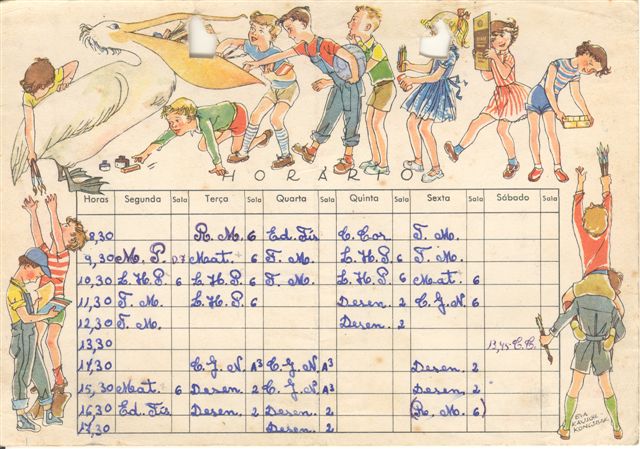 HORÁRIO
Horas Segunda Sala Terça Sala Quarta Sala Quinta Sala Sexta Sala Sábado Sala
8,30 R. M. 6 Ed. Fís C. Cor T. M.
9,30 M. P. D7 Mat. 6 T. M. L. H. P. 6 T. M.
10,30 L. H. P. 6 L. H. P. 6 T. M. L. H. P. 6 Mat. 6
11,30 T. M. L. H. P. 6 Desen. 2 C. G. N. 6
12,30 T. M. Desen. 2
13,30 13,45-C. C.
14,30 C. G. N. A3 C. G. N. A3 Desen. 2
15,30 Mat. 6 Desen. 2 C. G. N. A3 Desen. 2
16,30 Ed. Fís Desen. 2 Desen. 2 (R. M. 6)
17,30 Desen. 2
EVA